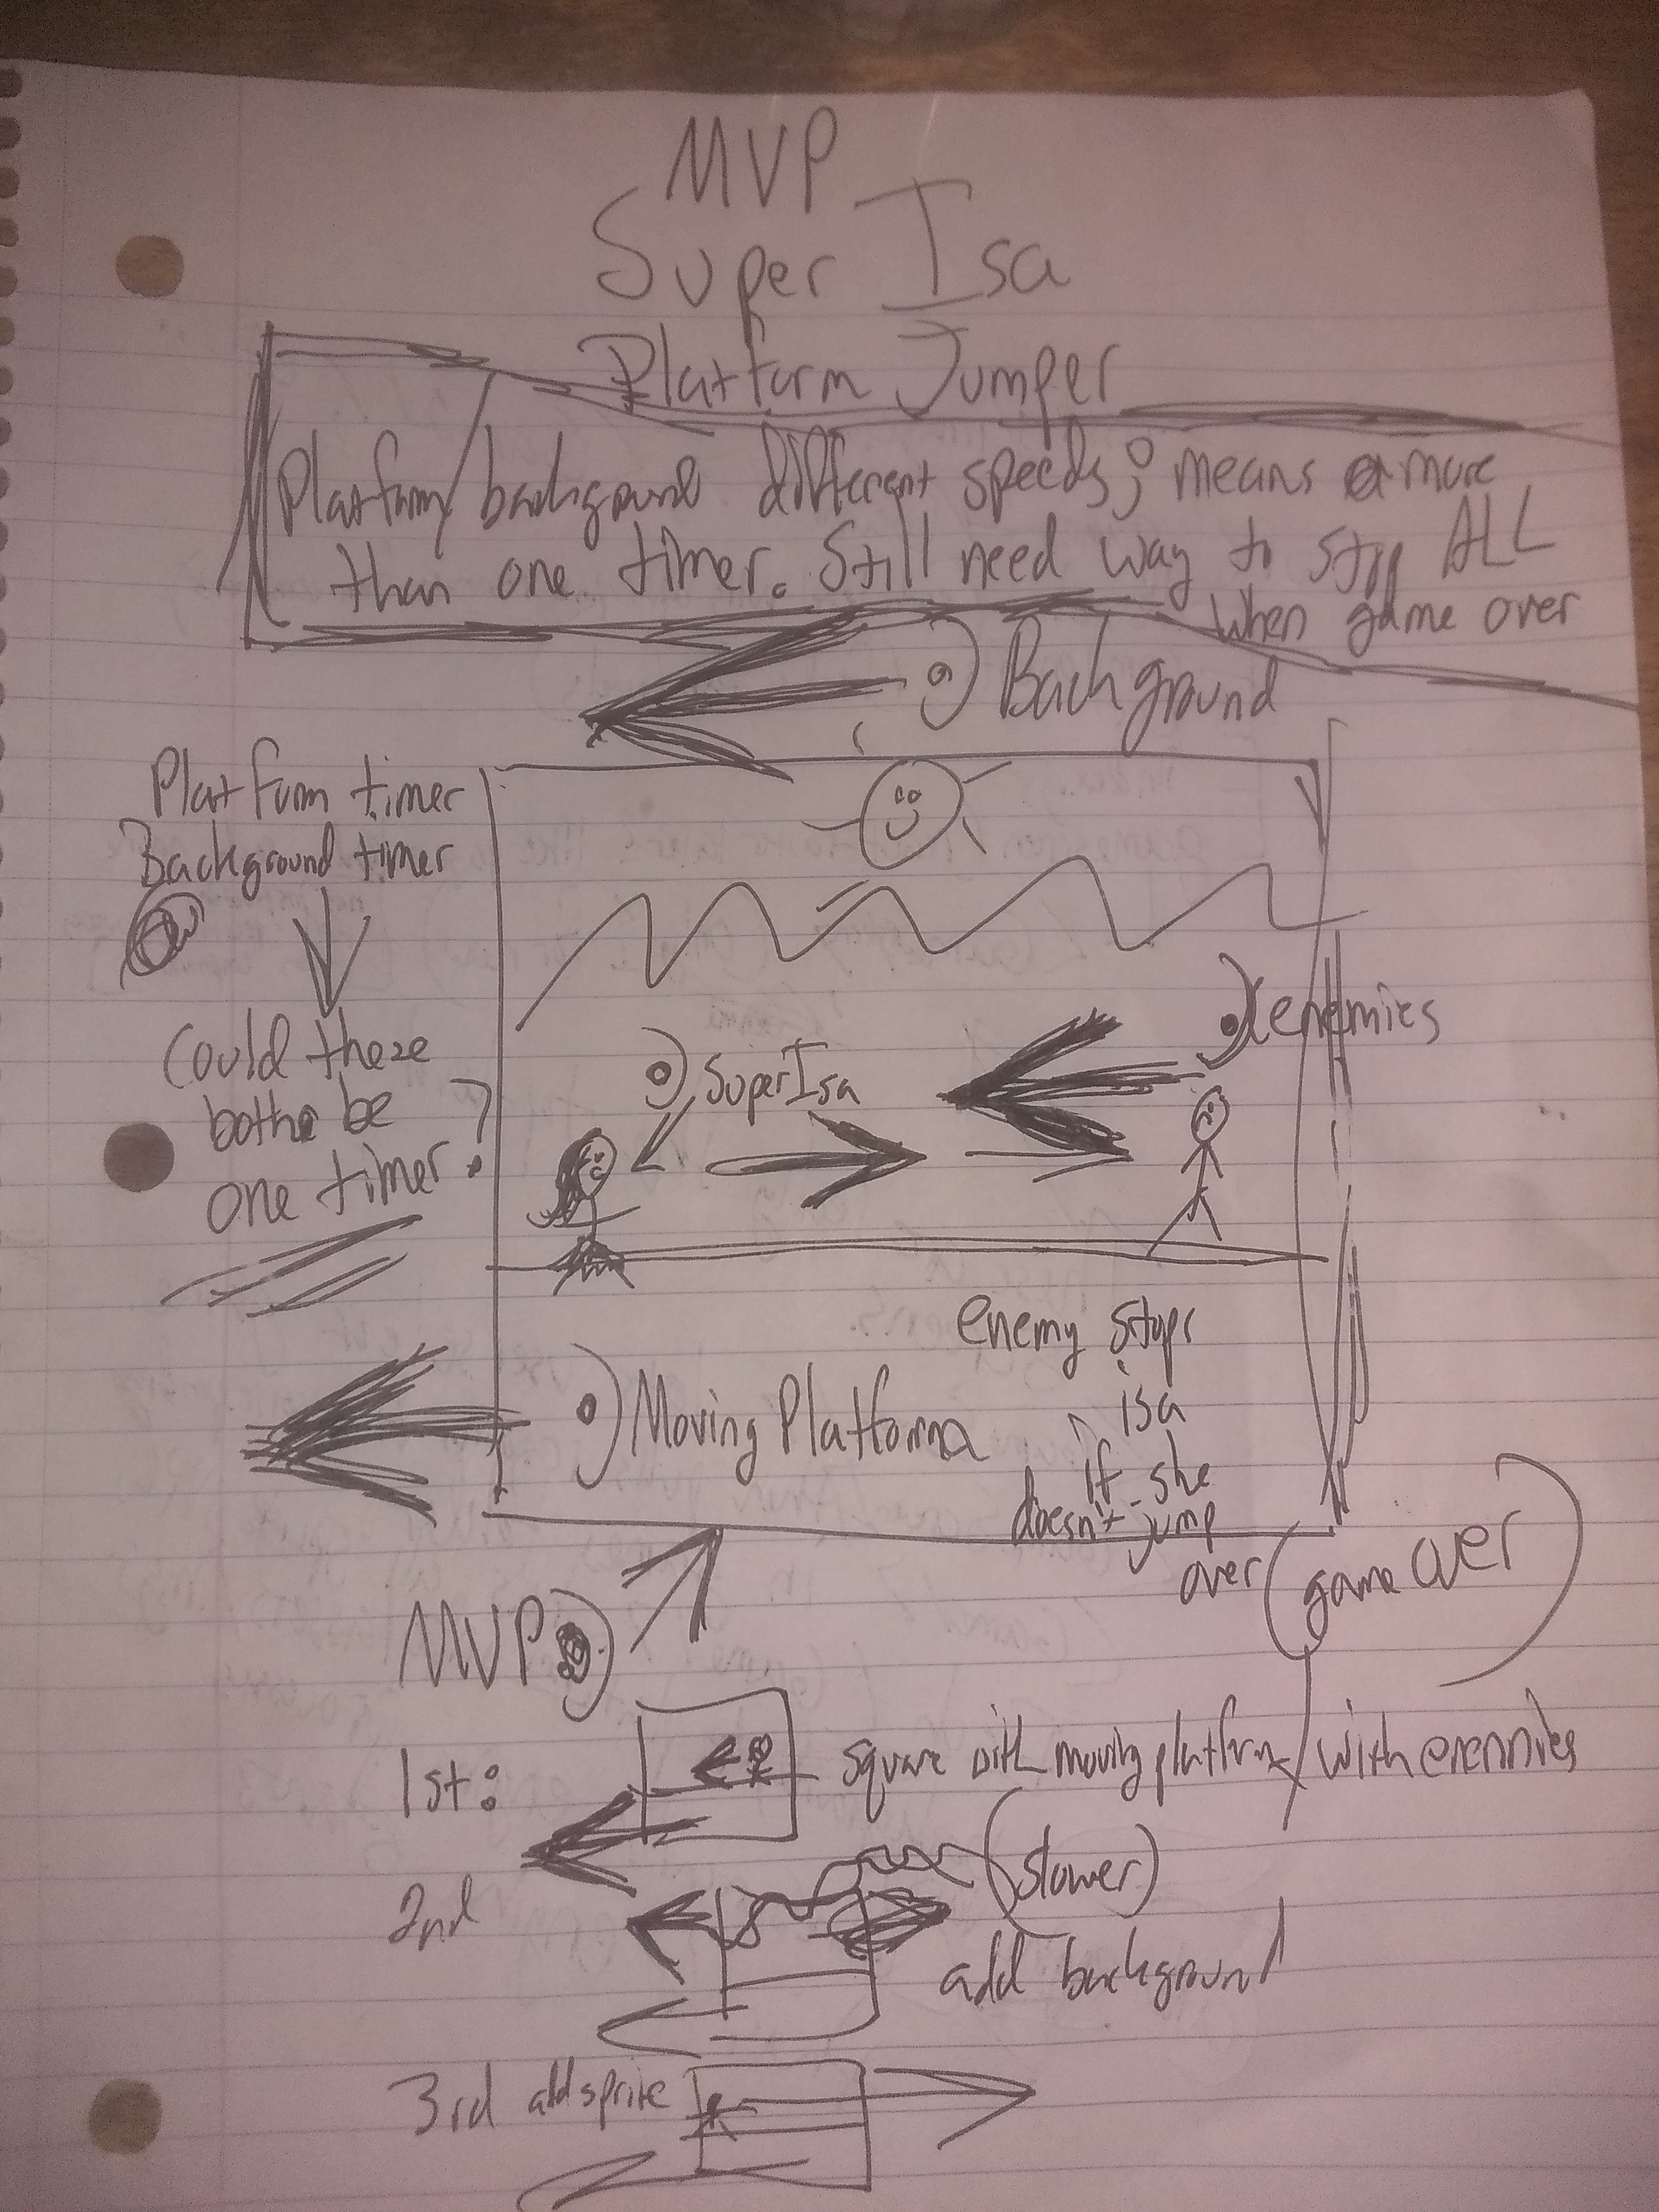 MVP
Super Isa
Platform Jumper
Platform/background different speeds; means more
than one timer. Still need way to stop ALL
when game over
Background
Platform timer
Background timer
Could these
both be
one timer?
enemies
Super Isa
enemy stops
isa
if she
doesn't jump
over (game over)
Moving Platform
MVP
1st: square with moving platform/with enemies
2nd (slower)
add background
3rd add sprite